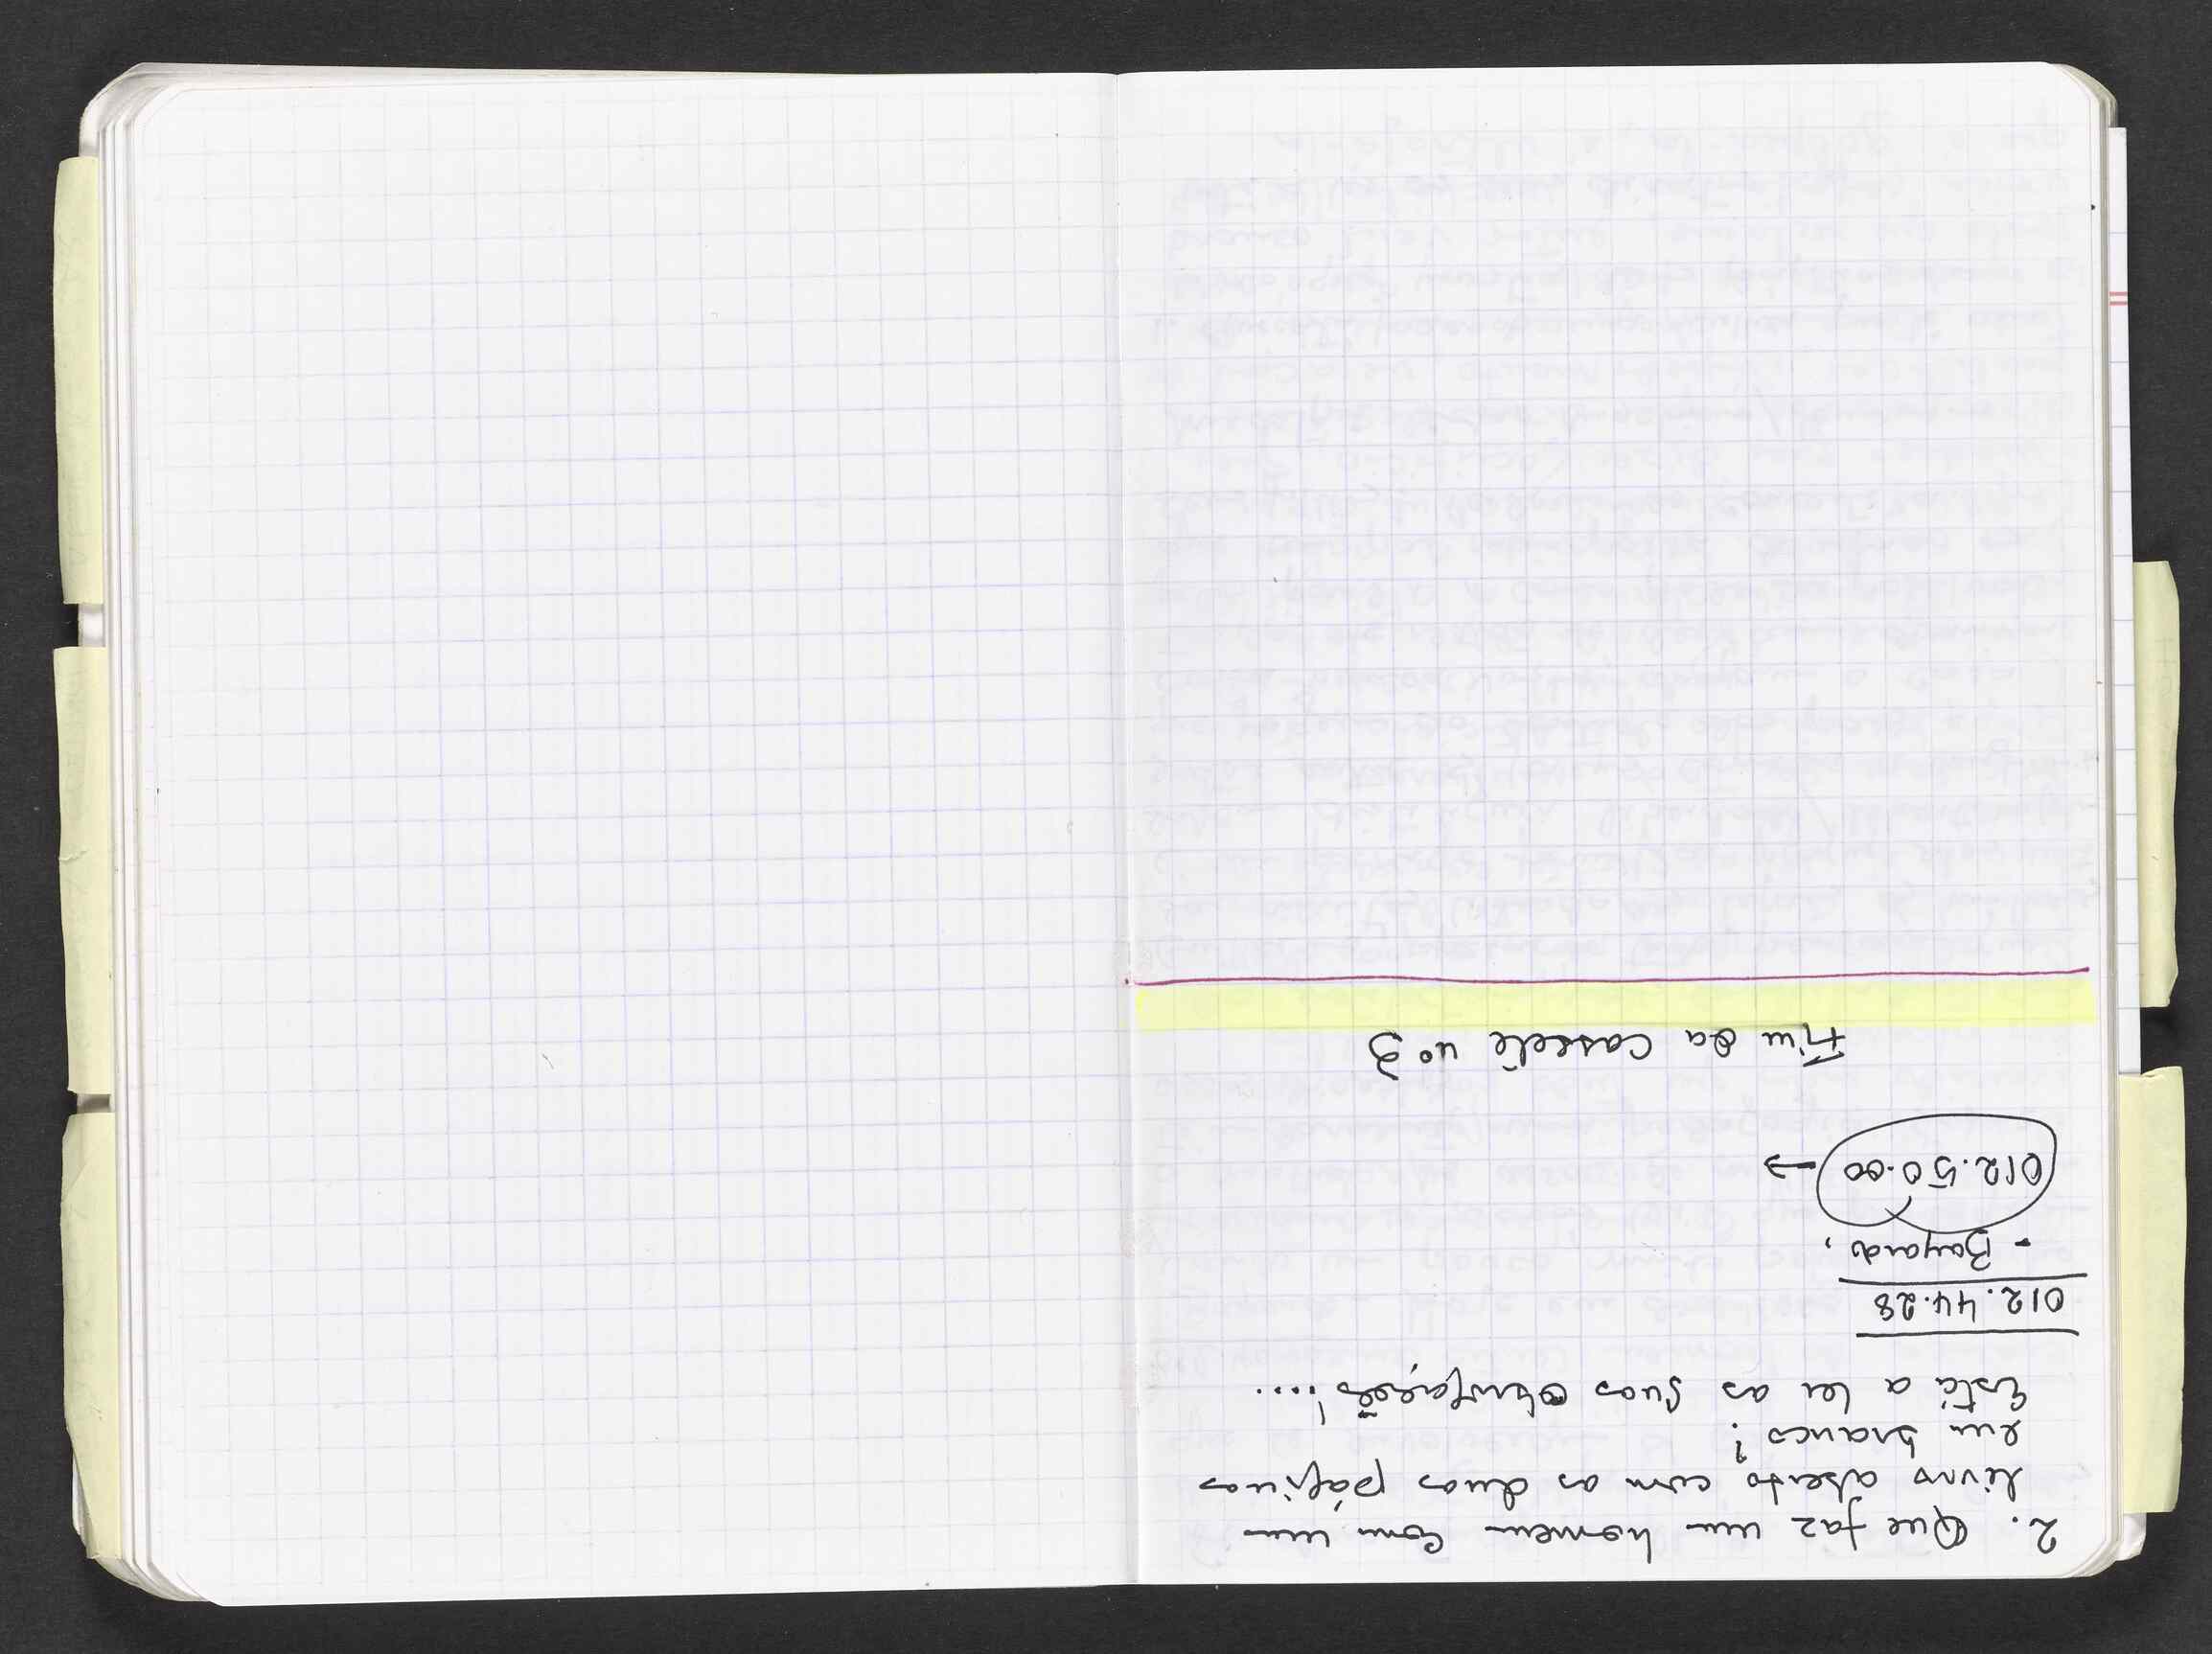 2. Que faz um homem com um
livro aberto com as duas páginas
em branco?
Está a ler as suas
012.44.28
- Bayard,
012.50.00 →
Fim da cassete nº 3